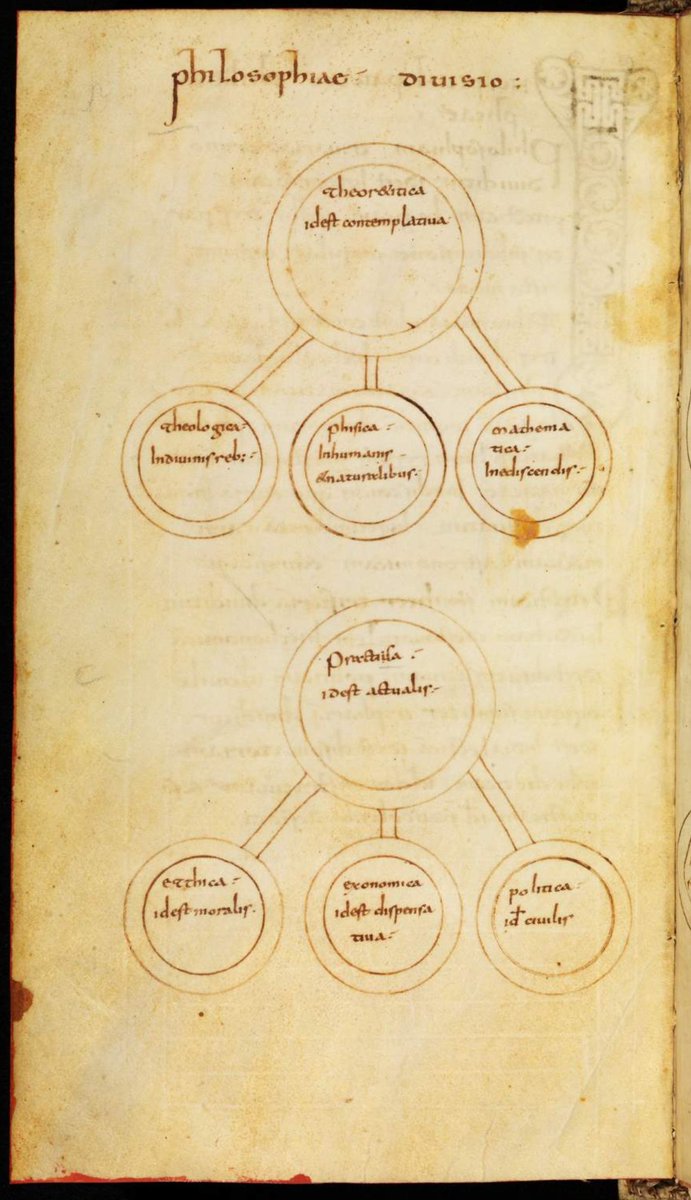 philosophiae divisio :
theoretica
id est contemplativa
theologica
In divinis reb;
phisica
In humanis
& naturalibus
mathema
tica
In ediscendis
Practica
id est actualis
etthica
id est moralis
exonomica
id est dispensa
tiva
politica
id civilis